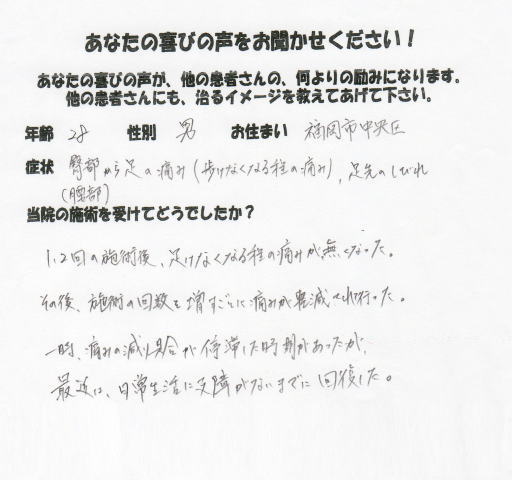 あなたの喜びの声をお聞かせください！
あなたの喜びの声が、他の患者さんの、何よりの励みになります。
他の患者さんにも、治るイメージを教えてあげて下さい。
年齢 28 性別 男 お住まい 福岡市中央区
症状 臀部から足の痛み(歩けなくなる程の痛み)、足先のしびれ
(腰部)
当院の施術を受けてどうでしたか？
1、2回の施術後、歩けなくなる程の痛みが無くなった。
その後、施術の回数を増すごとに痛みが軽減され行った。
一時、痛みの減り具合が停滞した時期があったが、
最近は、日常生活に支障がないまでに回復した。